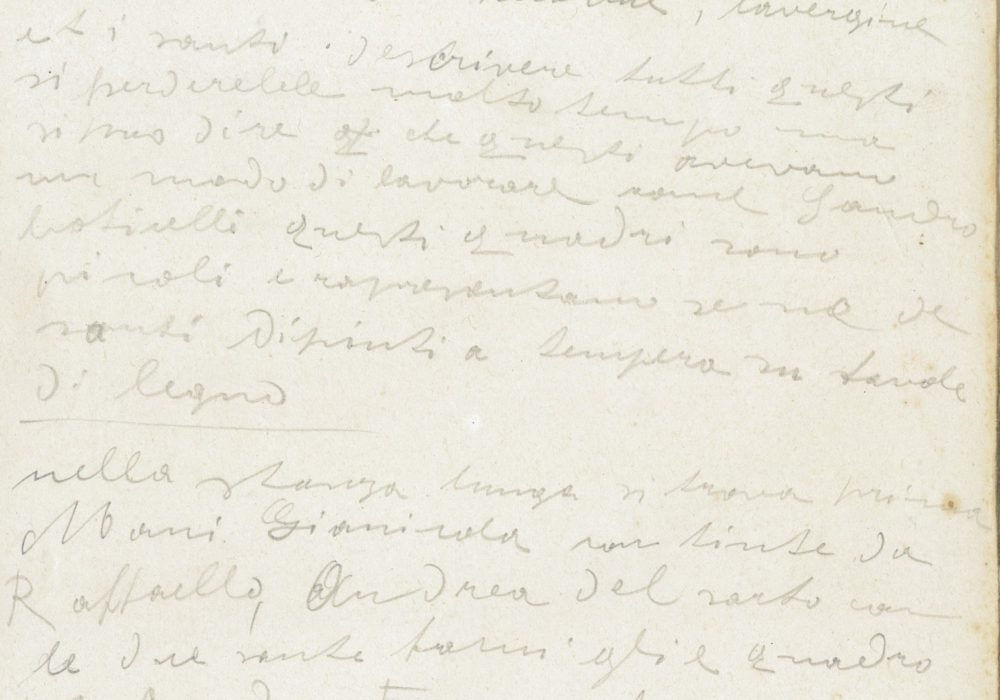 , lavergine
et i santi. descrivere tutti questi
si perderebbe molto tempo ma
si puo dire che questi avevano
un modo di lavorare come Sandro
boticelli questi quadri sono
picoli e rapresentano scene de
santi dipinti a tempera su tavole
di legno
nella stanza lunga si trova prima
Mani Gianicola con tinte da
Raffaello, Andrea del sarto con
le due sante famiglie quadro